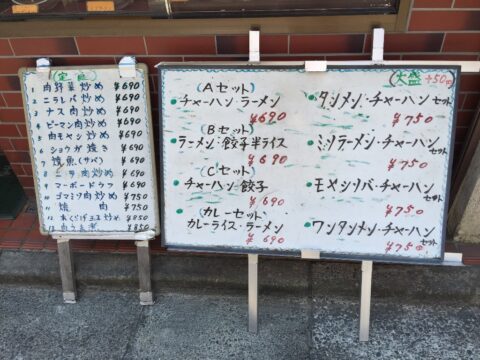 (定食)
1 肉野菜炒め ¥690
2 ニラレバ炒め ¥690
3 ナス肉炒め ¥690
4 ピーマン肉炒め ¥690
5 肉モヤシ炒め ¥690
6 ショウガ焼き ¥690
7 焼魚(サバ) ¥690
8 ニラ肉炒め ¥690
9 マーボードウフ ¥690
10 ¥750
焼肉 ¥750
炒め ¥850
¥850
(Aセット)
チャーハン・ラーメン
¥690
(Bセット)
ラーメン・餃子半ライス
¥690
(Cセット)
チャーハン・餃子
¥690
(カレーセット)
カレーライス・ラーメン
¥690
(大盛+50円)
タンメン・チャーハンセット
¥750
ミソラーメン・チャーハンセット
¥750
モヤシソバ・チャーハンセット
¥750
ワンタンメン・チャーハンセット
¥750